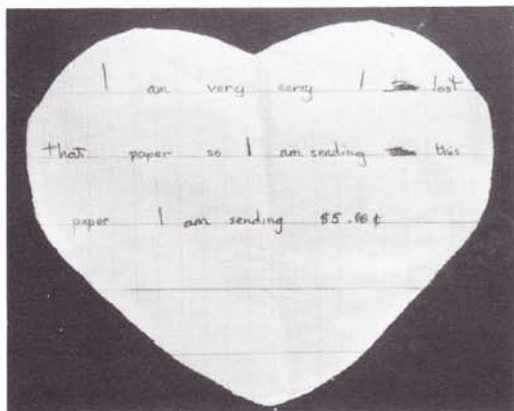 I am very sorry I lost
that paper so I am sending this
paper I am sending $5.00¢